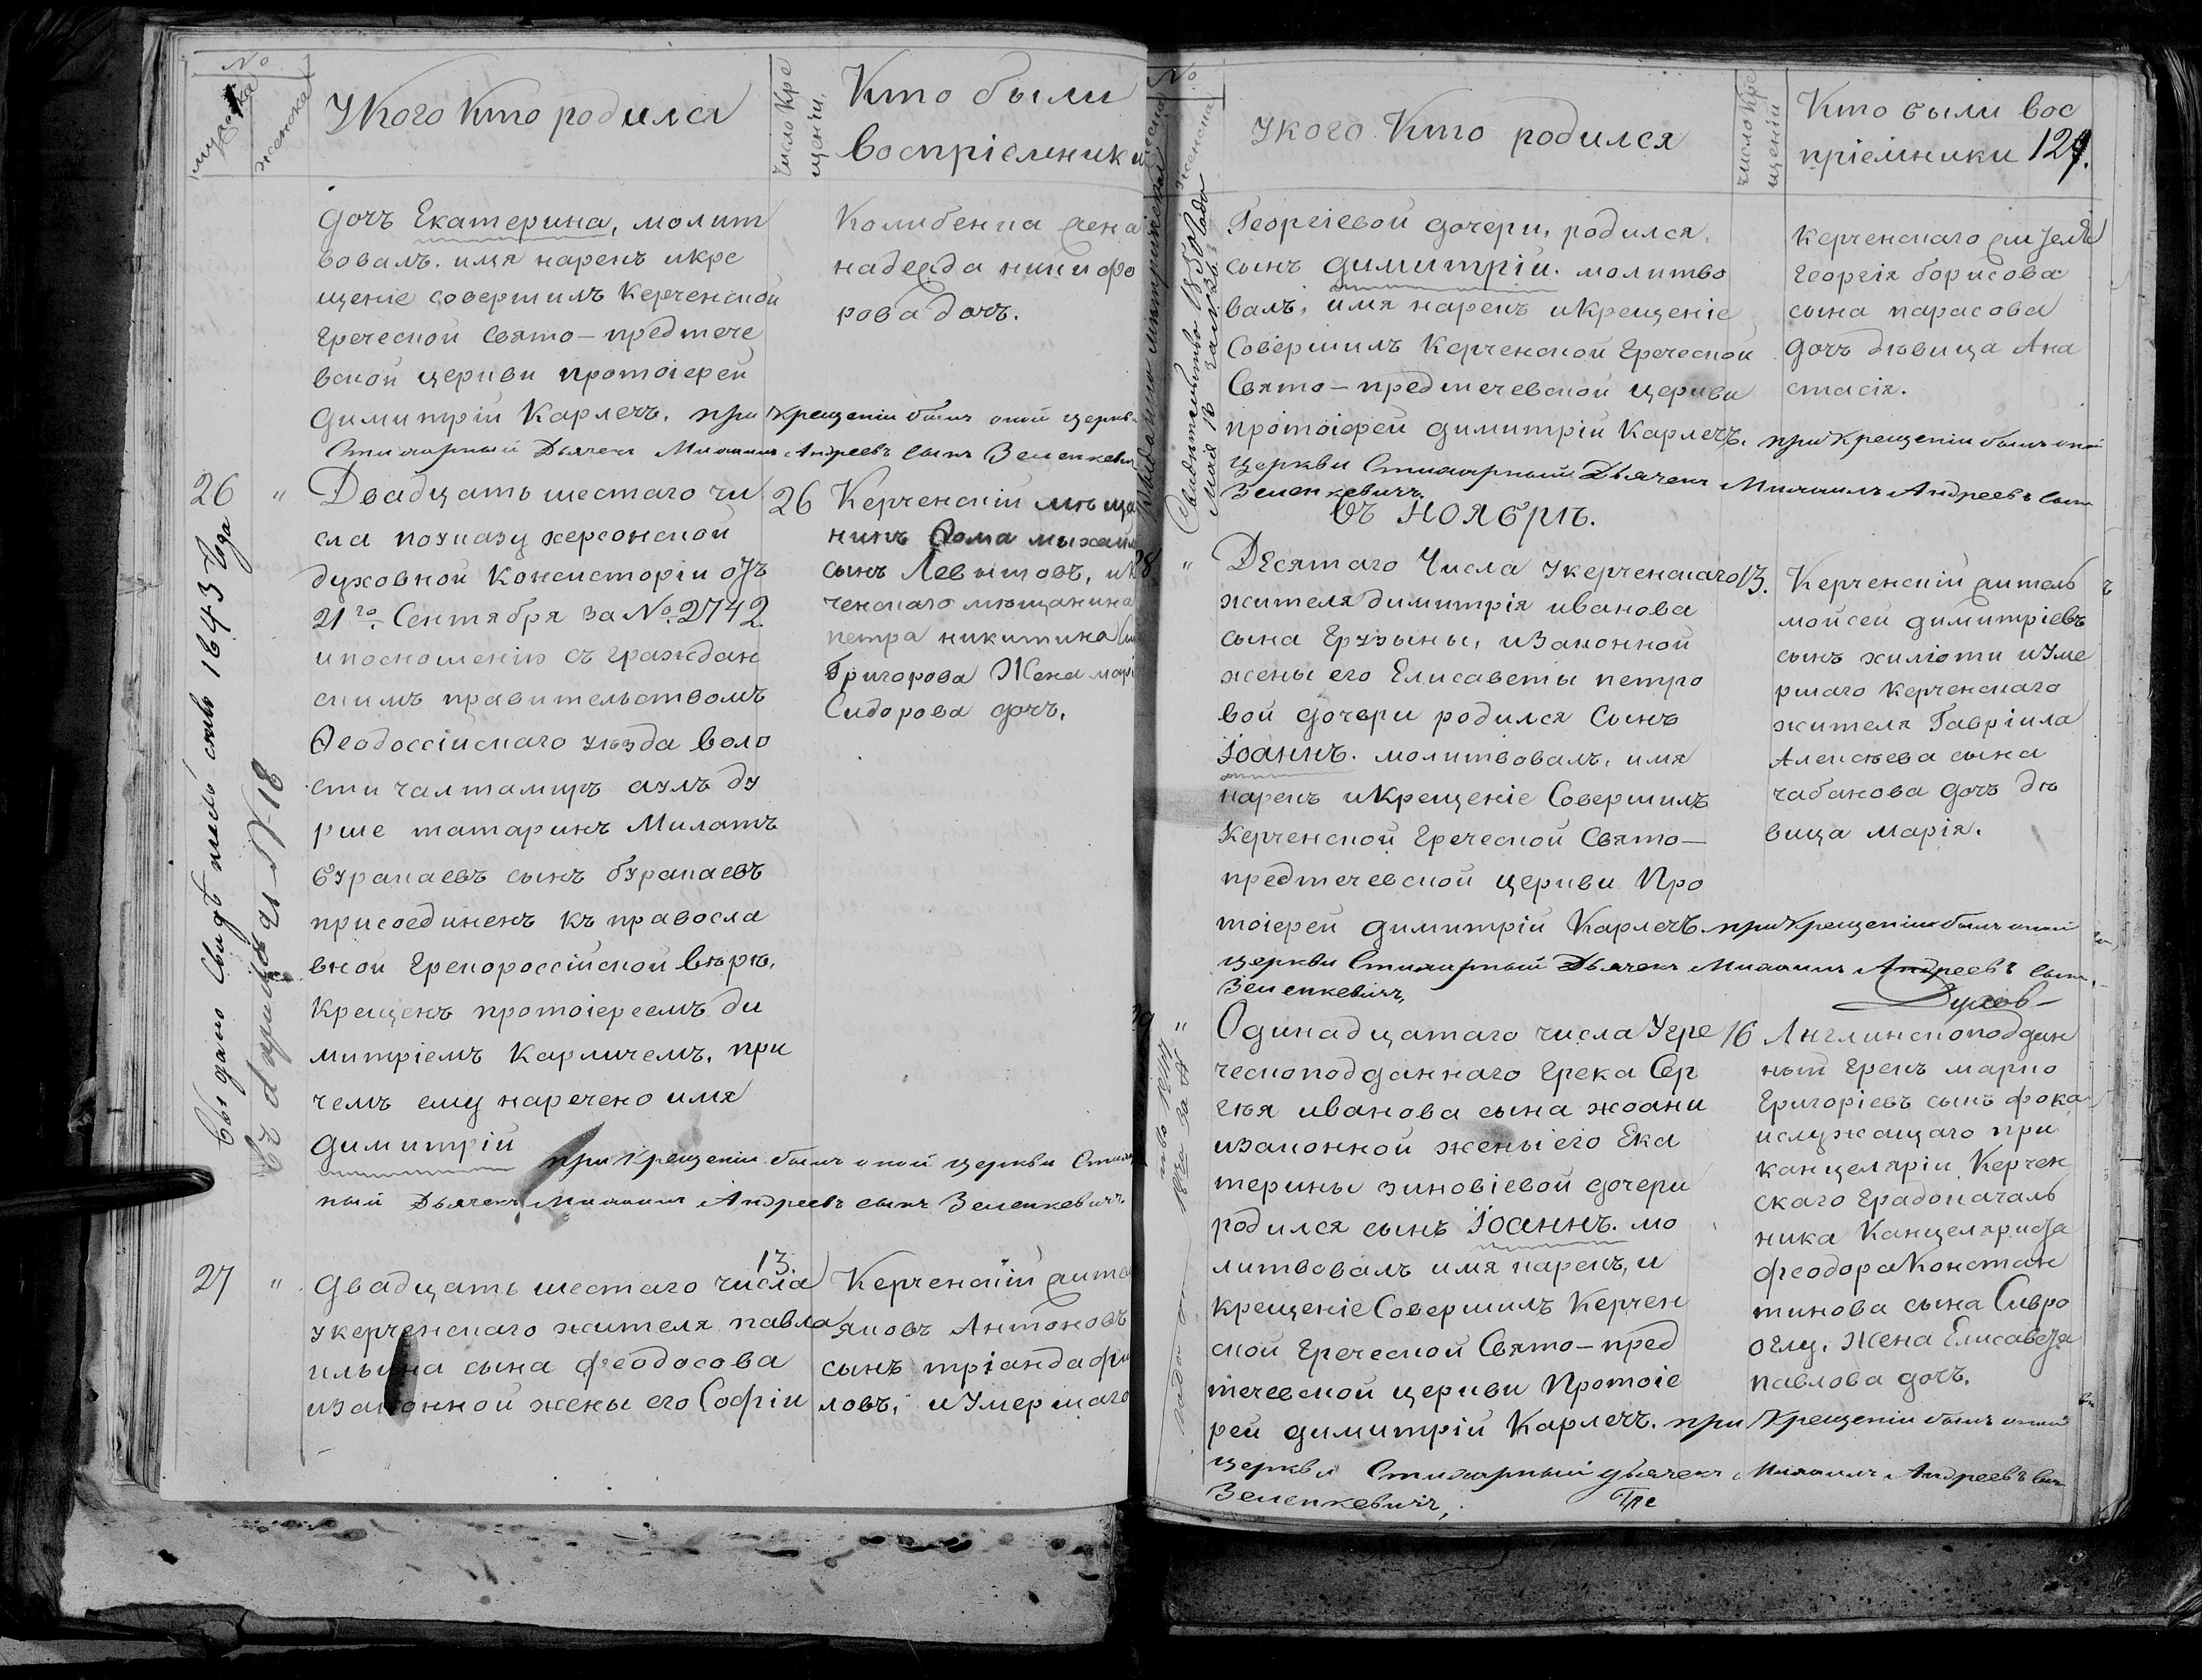 №
мужска
женска
У Кого Кто родился
Число Кре
щенія.
Кто были
воспріемники
дочъ Екатерина, молит
вовалъ. имя нарекъ и кре
щеніе совершилъ Керченской
Греческой Свято-предтече
вской церкви протоіерей
Димитрій Карлечъ. при Крещеніи былъ оной церкв
Стихарный Дьячекъ Михаилъ Андреевъ сынъ Зеленкевич
Колибенка жена
надежда никифо
рова дочъ.
26 "
Двадцать шестаго чи
сла по указу херсонской
духовной Консисторіи отъ
21го Сентября за № 2742
и по сношенію съ граждан
скимъ правительствомъ
Ѳеодоссійскаго уѣзда воло
сти
татаринъ
сынъ
присоединенъ къ правосла
вной Грекороссійской вѣрѣ,
Крещенъ протоіереемъ ди
митріемъ Карличемъ, при
чемъ ему наречено имя
Димитрій
при Крещеніи былъ оной церкви Стихар
ный Дьячекъ Михаилъ Андреевъ сынъ Зеленкевичъ.
26
Керченскій мѣща
нинъ Ѳома михаил
сынъ Левытовъ, и К
ченскаго мѣщанина
петра никитина
Григорова Жена марі
Сидорова дочъ.
27 "
Двадцать шестаго числа
у керченскаго жителя павла
ильина сына феодосова
и законной жены его Софіи
13.
Керченскій жите
яковъ Антоновъ
сынъ тріандафи
ловъ, и Умершаго
№
женска
У кого Кто родился
число Кре
щеніи
Кто были вос
пріемники 129.
Георгіевой дочери, родился
сынъ Димитрій. молитво
валъ, имя нарекъ и Крещеніе
Совершилъ Керченской Греческой
Свято-предтечевской церкви
протоіерей димитрій Карлечъ. при Крещеніи былъ оной
церкви Стихарный Дьячекъ Михаилъ Андреевъ сынъ
Зеленкевичъ.
керченскаго жителя
Георгія борисова
сына парасова
дочъ дѣвица Ана
стасія.
Въ ноябрѣ.
28 "
Десятаго Числа у керченскаго
жителя димитрія иванова
сына Грузыны, и законной
жены его Елисаветы петро
вой дочери родился Сынъ
Іоаннъ. молитвовалъ, имя
нарекъ и Крещеніе Совершилъ
Керченской Греческой Свято-
предтечевской церкви Про
тоіерей димитрій Карлечъ. при Крещеніи былъ оной
церкви Стихарный Дьячекъ Михаилъ Андреевъ сынъ
Зеленкевичъ,
13.
Керченскій житель
мойсей димитріевъ
сынъ хиліоти и Уме
ршаго Керченскаго
жителя Гавріила
Алексѣева сына
чабанова дочъ дѣ
вица марія.
"
Одинадцатаго числа У гре
ческоподданнаго грека Сер
гѣя иванова сына жоани
и законной жены его Ека
терины зиновіевой дочери
родился сынъ Іоаннъ. мо
литвовалъ имя нарекъ, и
крещеніе Совершилъ Керчен
ской Греческой Свято-пред
течевской церкви Протоіе
рей димитрій Карлечъ. при Крещеніи былъ оной
церкви Стихарный дьячекъ Михаилъ Андреевъ сын
Зеленкевичъ,
16
Англинскоподдан
ный Грекъ марко
Григоріевъ сынъ фока
и служащаго при
канцеляріи Керчен
скаго Градоначаль
ника Канцеляриста
феодора Констан
тинова сына Сивро
оглу, Жена Елисавета
павлова дочъ.